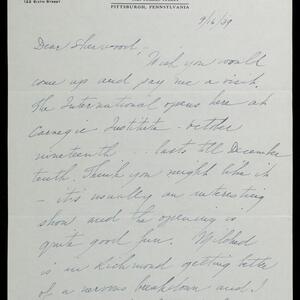 122 SIXTH STREET
PITTSBURGH, PENNSYLVANIA
9/16/39
Dear Sherwood:
Wish you would
come up and pay me a visit.
The International opens here at
Carnegie Institute - October
nineteenth - lasts till December
tenth. Think you might like it
- it's usually an interesting
show and the opening is
quite good fun. Mildred
is in Richmond getting better
of a nervous breakdown and I